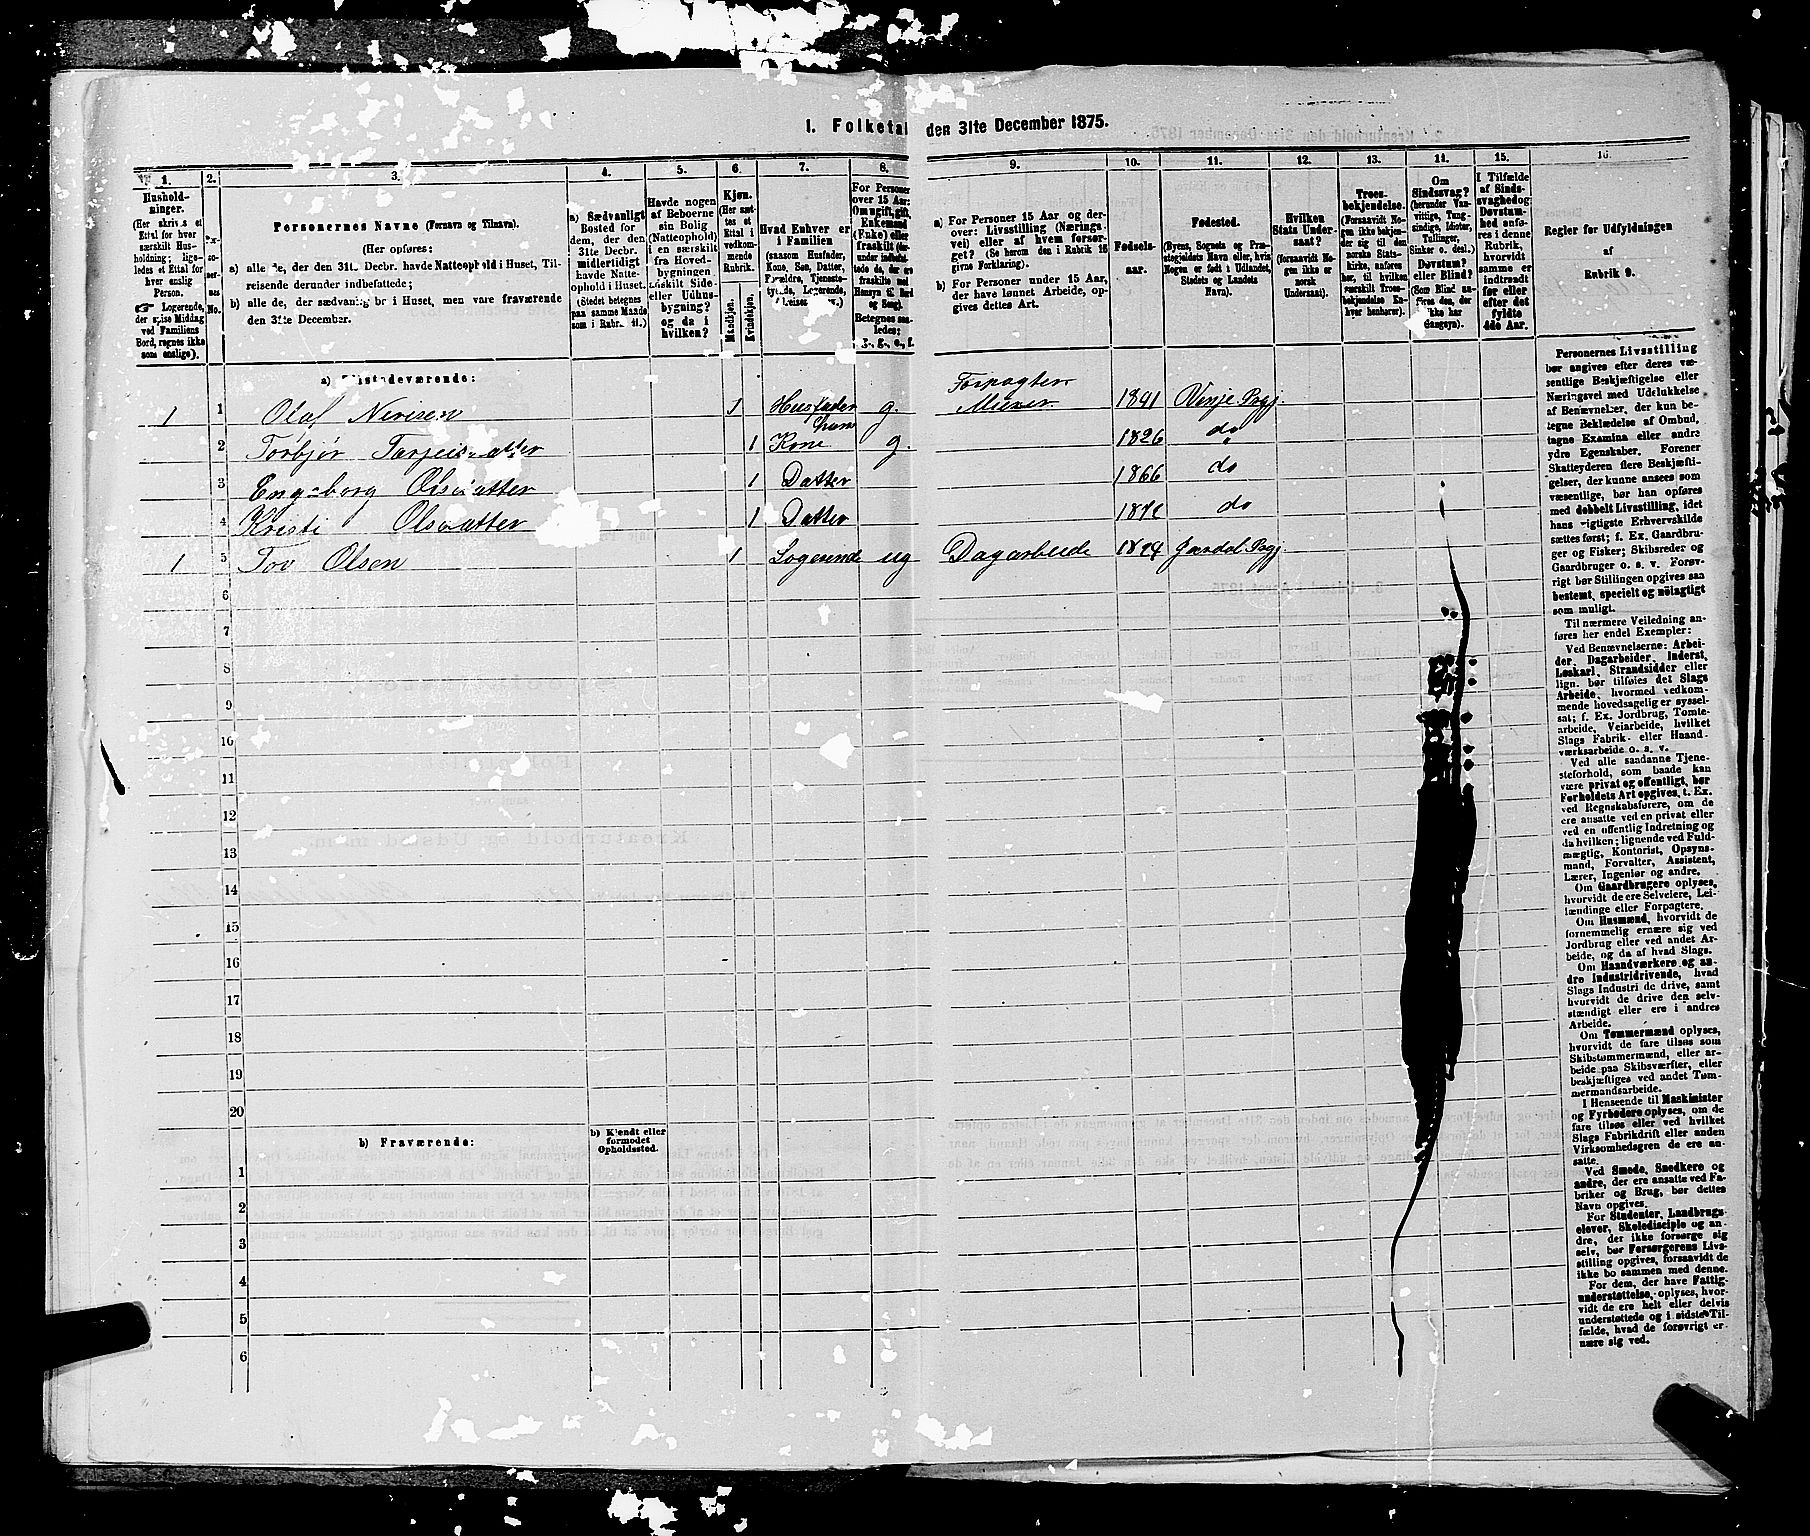 1. Folketal den 31te December 1875.
1. 2. 3. 4. 5. 6. 7. 8. 9. 10. 11. 12. 13. 14. 15. 16.
Hushold-
ninger.
(Her skrives et
Ettal for hver
særskilt Hus-
holdning; lige-
ledes et Ettal for
hver enslig
Person.
Logerende,
der spise Middag
ved Familiens
Bord, regnes ikke
som enslige).
No.
Personernes Navne (Fornavn og Tilnavn).
(Her opføres:
a) alle de, der den 31te Decbr. havde Natteophold i Huset, Til-
reisende derunder indbefattede;
b) alle de, der sædvanlig bor i Huset, men vare fraværende
den 31te December.
a) Sædvanligt
Bosted for
dem, der den
31te Decbr.
midlertidigt
havde Natte-
ophold i Huset.
(Stedet betegnes
paa samme Maade
som i Rubr. 11.)
Havde nogen
af Beboerne
sin Bolig
(Natteophold)
i en særskilt
fra Hoved-
bygningen
adskilt Side-
eller Udhus-
bygning?
og da i
hvilken?
Kjøn.
(Her sæt-
tes et
Ettal i
vedkom-
mende
Rubrik.
Mandkjøn.
Kvindekjøn.
Hvad Enhver er
i Familien
(saasom Husfader,
Kone, Søn, Datter,
Forældre, Tjeneste-
tyende, Logerende,
For Personer
over 15 Aar:
Om ugift, gift,
Enkemand
(Enke) eller
fraskilt
Betegnes saa-
ledes:
a) For Personer 15 Aar og der-
over: Livsstilling (Nærings-
vei) eller af hvem forsør-
get? (Se herom den i Rubrik 16
givne Forklaring).
b) For Personer under 15 Aar,
der have lønnet Arbeide, op-
gives dettes Art.
Fødsels-
aar.
Fødested.
(Byens, Sognets og Præ-
stegjeldets Navn eller, hvis
Nogen er født i Udlandet,
Stedets og Landets
Navn).
Hvilken
Stats Under-
saat?
(forsaavidt No-
gen ikke er
norsk
Undersaat).
Troes-
bekjendelse.
(Forsaavidt No-
gen ikke bekjen-
der sig til den
norske Stats-
kirke, anføres
her, til hvilken
særskilt Troes-
bekjendelse En-
hver henhører).
Om
Sindssvag?
(herunder Van-
vittige, Tung-
sindige, Idioter,
Tullinger,
Sinker o. desl.)
Døvstum?
eller Blind?
(Som Blind an-
føres den, der
ikke har
Gangsyn).
I Tilfælde
af Sinds-
svaghed og
Døvstum-
hed anfø-
res i denne
Rubrik,
hvorvidt
samme er
indtraadt
før eller
efter det
fyldte
4de Aar.
Regler for Udfyldningen
af
Rubrik 9.
a) Tilstedeværende:
1 1 Olaf Nerisen 1 Husfader g. Forpagter Murer 1841 Vinje Pgj.
2 Torbjør Tarjeisdatter 1 Kone g. 1826 do
3 Engeborg Olsdatter 1 Datter 1866 do
4 Kristi Olsdatter 1 Datter do
1 5 Tov Olsen 1 Logerende ug Dagarbeide Pgj.
6
7
8
9
10
11
12
13
14
15
16
17
18
19
20
b) Fraværende:
b) Kjendt eller
formodet
Opholdssted.
1
2
3
4
5
6
Personernes Livsstilling
bør angives efter deres væ-
sentlige Beskjæftigelse eller
Næringsvei med Udelukkelse
af Benævnelser, der kun be-
tegne Beklædelse af Ombud,
tagne Examina eller andre
ydre Egenskaber. Forener
Skatteyderen flere Beskjæfti-
gelser, der kunne ansees som
væsentlige, bør han opføres
med dobbelt Livsstilling, idet
hans vigtigste Erhvervskilde
sættes først; f. Ex. Gaardbru-
ger og Fisker; Skibsreder og
Gaardbruger o. s. v. Forøv-
rigt bør Stillingen opgives saa
bestemt, specielt og nøiagtigt
som muligt.
Til nærmere Veiledning an-
føres her endel Exempler:
Ved Benævnelserne: Arbei-
der, Dagarbeider, Inderst,
Løskarl, Strandsidder eller
lign. bør tilføies det Slags
Arbeide, hvormed vedkom-
mende hovedsagelig er syssel-
sat; f. Ex. Jordbrug, Tomte-
arbeide, Veiarbeide, hvilket
Slags Fabrik- eller Haand-
værksarbeide o. s. v.
Ved alle saadanne Tjene-
steforhold, som baade kan
være privat og offentligt, bør
Forholdets Art opgives, t. Ex.
ved Regnskabsførere, om de
ere ansatte ved en privat eller
ved en offentlig Indretning og
da hvilken; lignende ved Fuld-
mægtig, Kontorist, Opsyns-
mand, Forvalter, Assistent,
Lærer, Ingeniør og andre.
Om Gaardbrugere oplyses,
hvorvidt de ere Selveiere, Lei-
lændinge eller Forpagtere.
Om Husmænd, hvorvidt de
fornemmelig ernære sig ved
Jordbrug eller ved andet Ar-
beide, og da af hvad Slags.
Om Haandværkere og an-
dre Industridrivende, hvad
Slags Industri de drive, samt
hvorvidt de drive den selv-
stændigt eller ere i andres
Arbeide.
Om Tømmermænd oplyses,
hvorvidt de fare tilsøs som
Skibstømmermænd, eller ar-
beide paa Skibsværfter, eller
beskjæftiges ved andet Tøm-
mermandsarbeide.
I Henseende til Maskinister
og Fyrbødere oplyses, om de
fare tilsøs eller ved hvilket
Slags Fabrikdrift eller anden
Virksomhedsgren de ere an-
satte.
Ved Smede, Snedkere og
andre, der ere ansatte ved Fa-
briker og Brug, bør dettes
Navn opgives.
For Studenter, Landbrugs-
elever, Skoledisciple og an-
dre, der ikke forsørge sig
selv, bør Forsørgerens Livs-
stilling opgives, forsaavidt de
ikke bo sammen med denne.
For dem, der have Fattig-
understøttelse, oplyses, hvor-
vidt de ere helt eller delvis
understøttede og i sidste Til-
fælde, hvad de forøvrigt er-
nære sig ved.